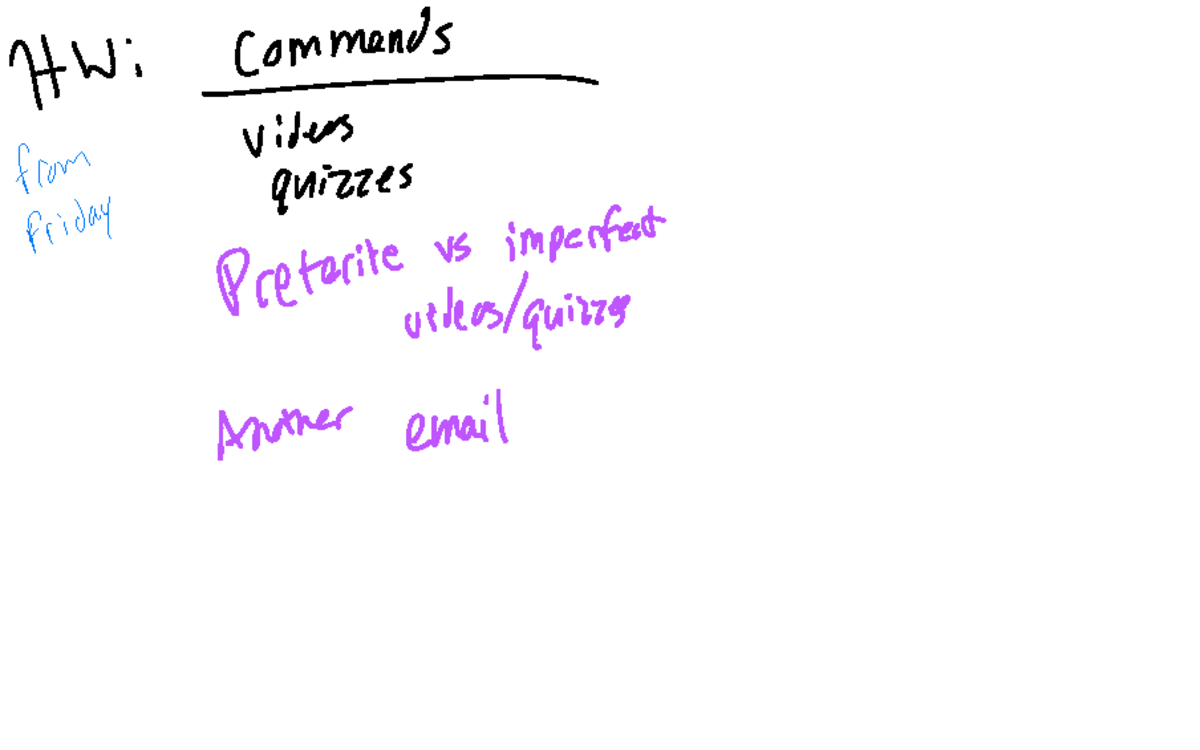 HW: Commands
videos
quizzes
from
Friday
Preterite vs imperfect
videos/quizzes
Another email